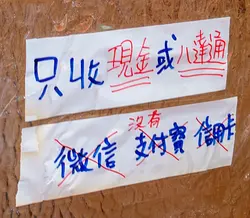 只收現金或八達通
沒有
微信 支付寶 信用卡